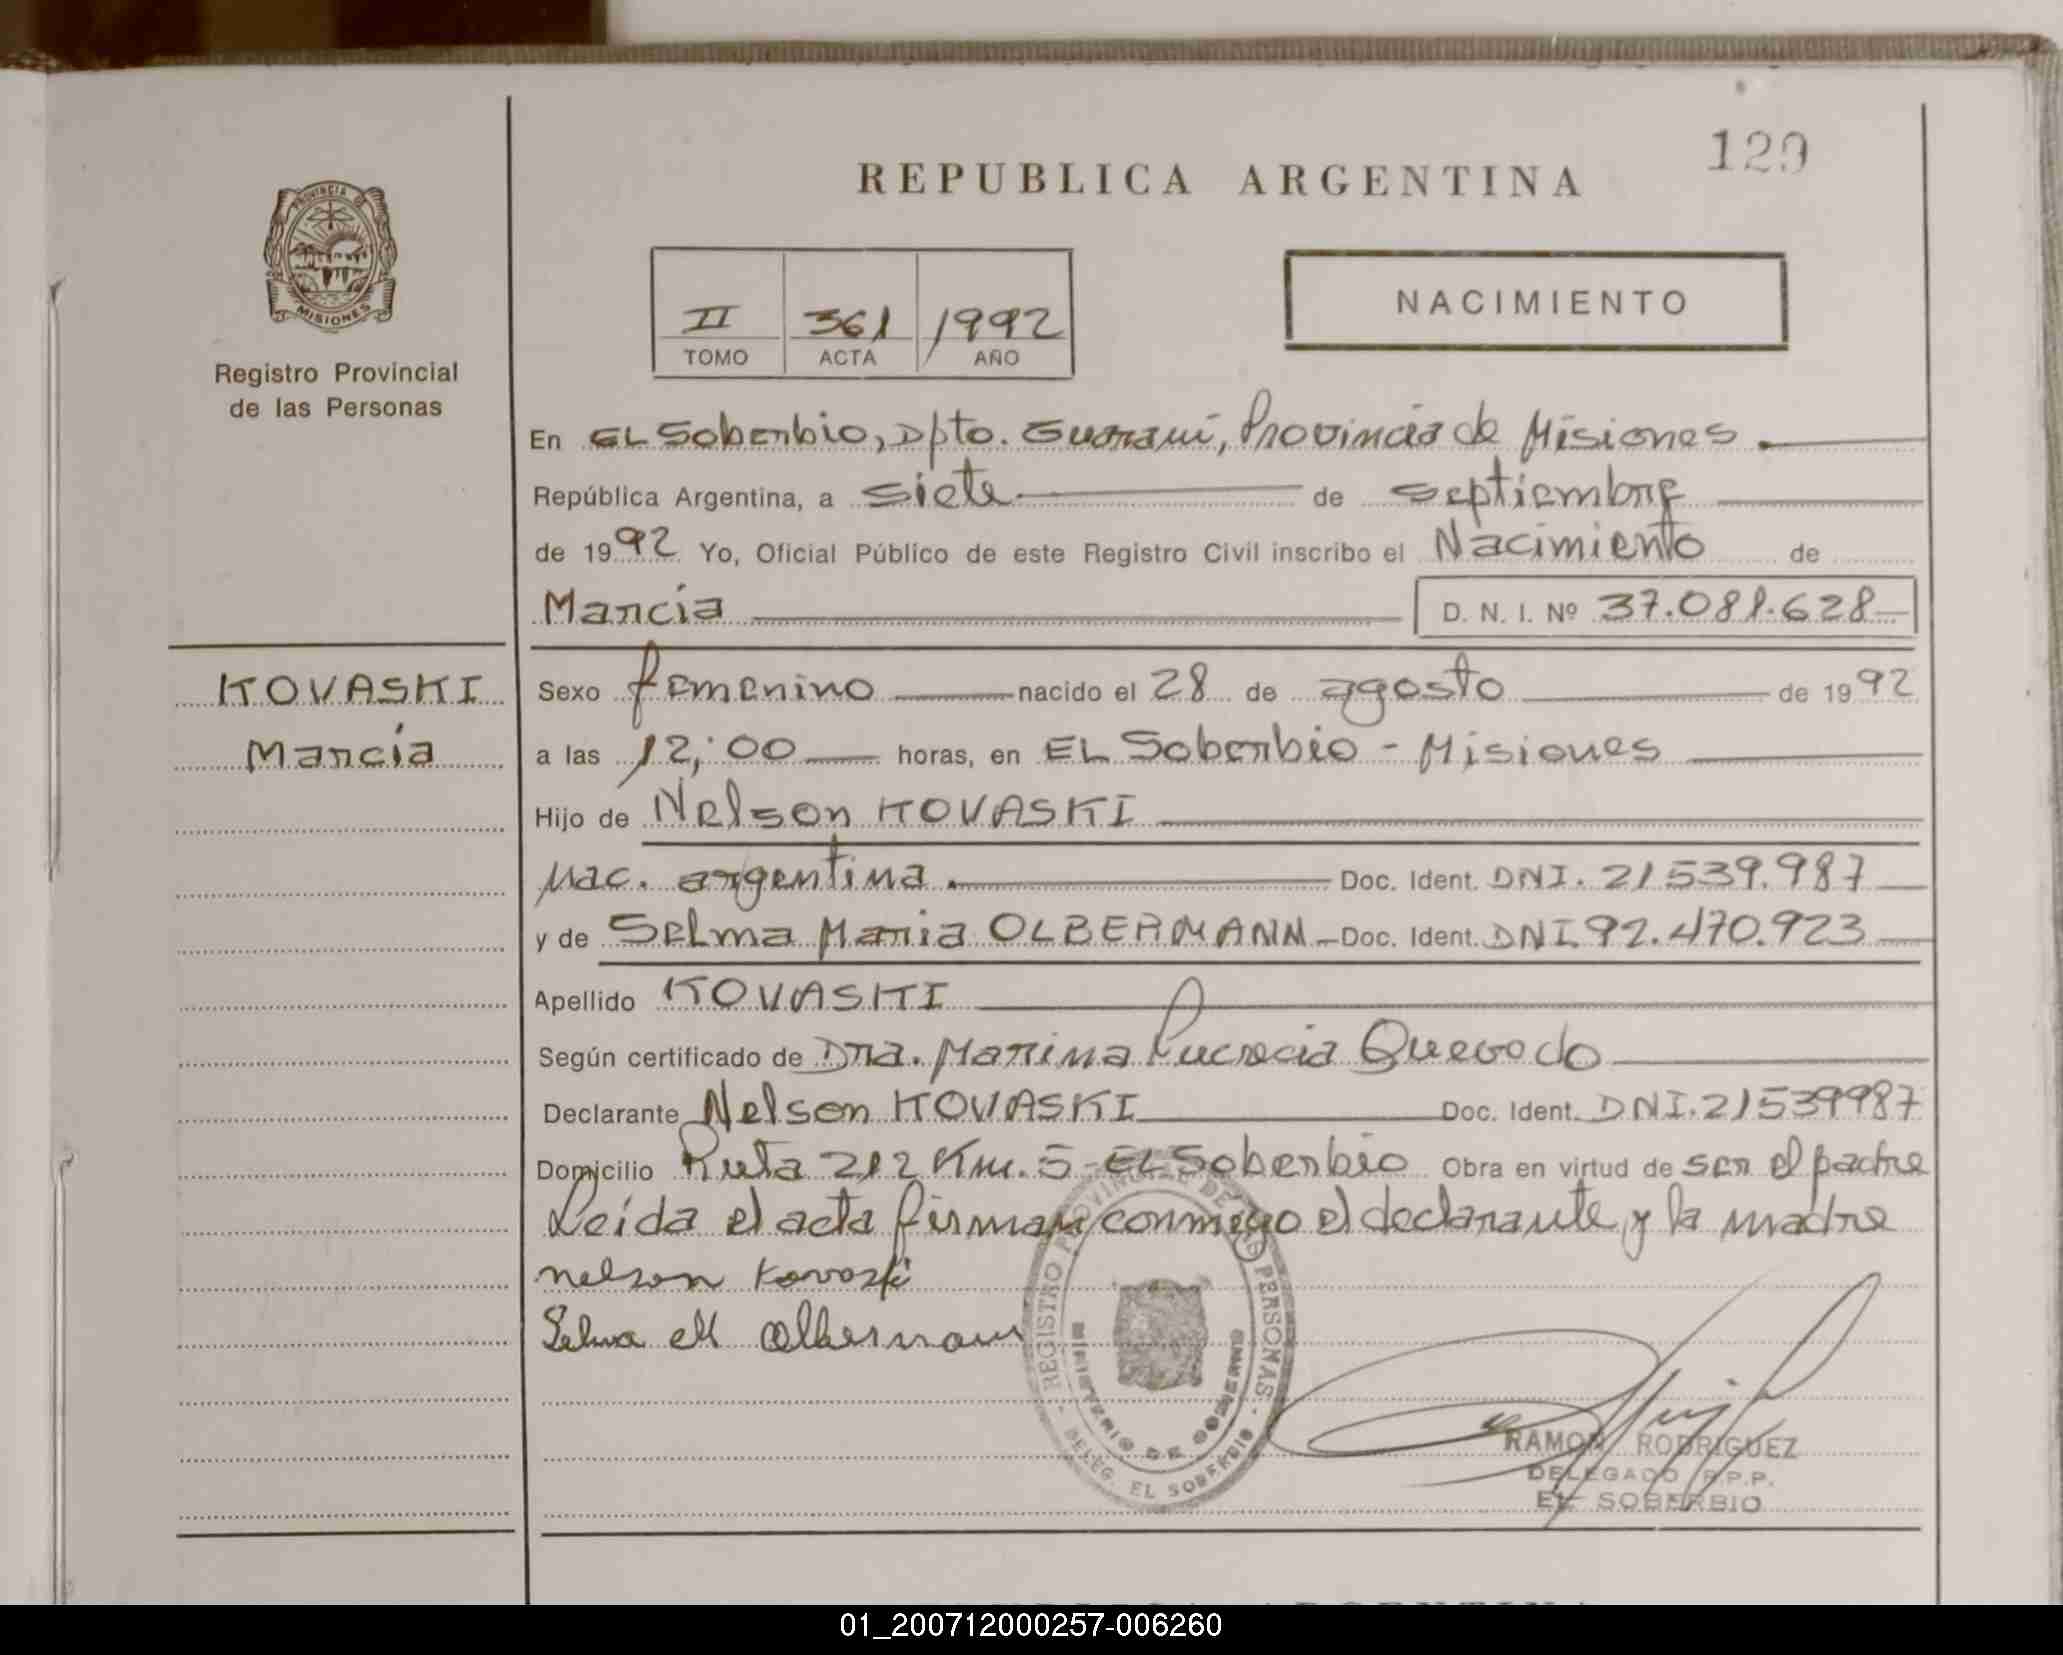 129
REPUBLICA ARGENTINA
PROVINCIA DE
MISIONES
Registro Provincial
de las Personas
II 361 1992
TOMO ACTA AÑO
NACIMIENTO
En EL Soberbio, Dpto. Guarani, Provincia de Misiones.
República Argentina, a siete de septiembre
de 1992 Yo, Oficial Público de este Registro Civil inscribo el Nacimiento de
Marcia D. N. I. Nº 37.081.628
KOVASKI
Marcia
Sexo femenino nacido el 28 de agosto de 1992
a las 12;00 horas, en EL Soberbio - Misiones
Hijo de Nelson KOVASKI
Nac. argentina. Doc. Ident. DNI. 21.539.987
y de Selma Maria OLBERMANN Doc. Ident. DNI. 92.470.923
Apellido KOVASKI
Según certificado de Dra. Marina Lucrecia Quevedo
Declarante Nelson KOVASKI Doc. Ident. DNI. 21539987
Domicilio Ruta 212 Km. 5 - EL Soberbio Obra en virtud de ser el padre
Leída el acta firman conmigo el declarante y la madre
nelson Kovaski
Selma M Olbermann
REGISTRO PROVINCIAL DE LAS PERSONAS
MINISTERIO DE GOBIERNO
DELEG. EL SOBERBIO
RAMON RODRIGUEZ
DELEGADO R.P.P.
EL SOBERBIO
01_200712000257-006260